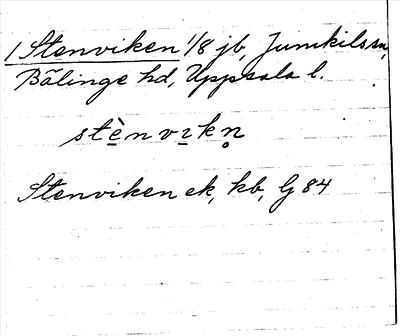 1 Stenviken 1/8 jb, Jumkils sn,
Bälinge hd, Uppsala l.
stè̱nvı̱kn̥
Stenviken ek, kb, G 84